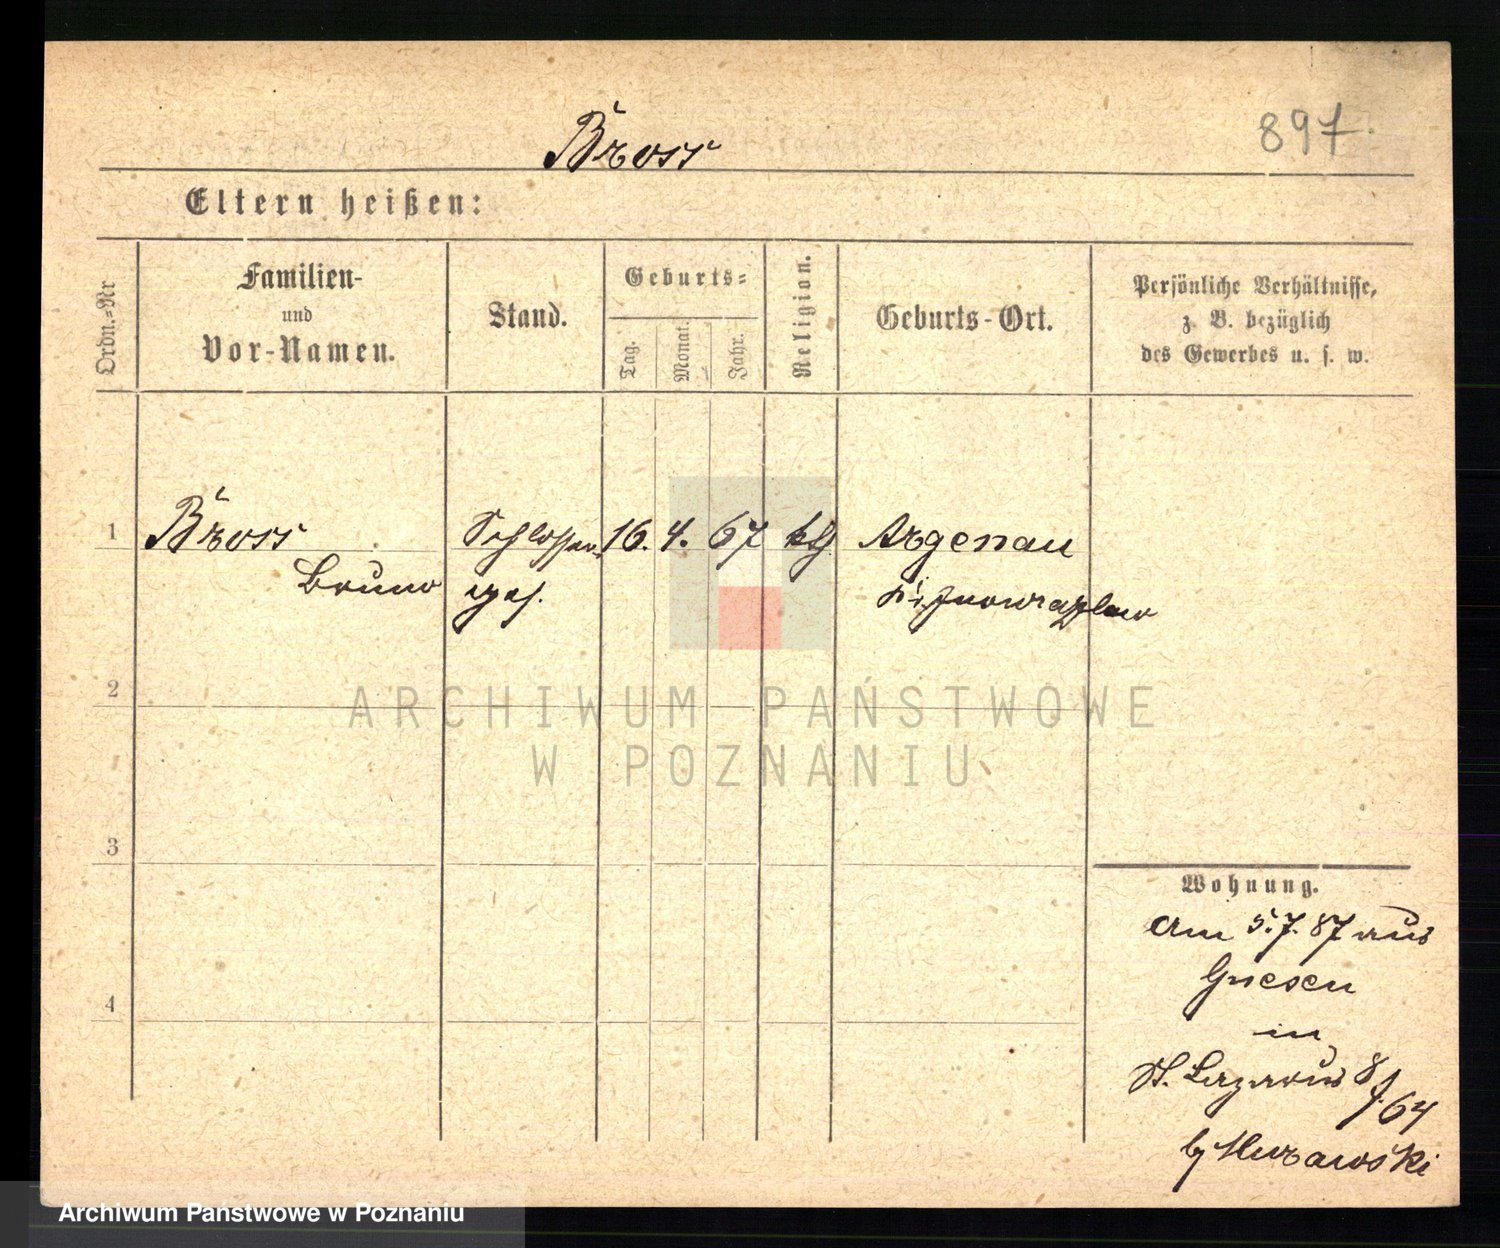 Bross
897
Eltern heißen:
Ordn.=Nr
Familien-
und
Vor-Namen.
Stand.
Geburts=
Tag.
Monat.
Jahr.
Religion.
Geburts-Ort.
Persönliche Verhältnisse,
z. B. bezüglich
des Gewerbes u. s. w.
1
Bross
Bruno
Schlosser
16. 4. 67
Argenau
2
3
4
Wohnung.
am 5.7.87 aus
Gnesen
in
St. Lazarus 8
64
Murawski
ARCHIWUM PAŃSTWOWE
W POZNANIU
Archiwum Państwowe w Poznaniu